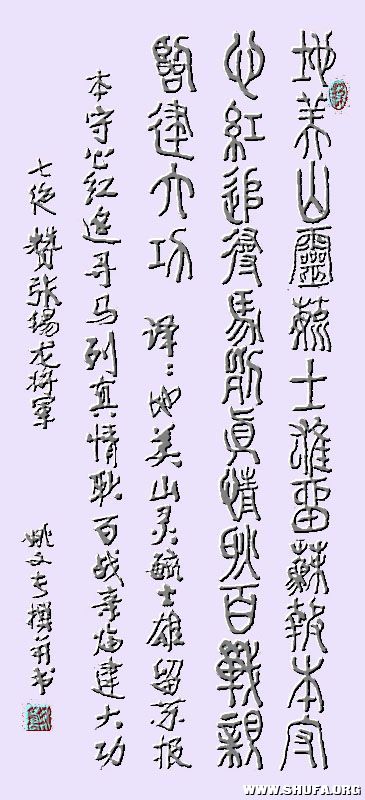 地美山靈毓士雄留蘇報本守
心紅追尋馬列真情耿百戰親
建大功 译:地美山灵毓士雄留苏报
本守心红追寻马列真情耿百战亲建大功
七绝 赞张锡龙将军 姚文撰并书
WWW.SHUFA.ORG